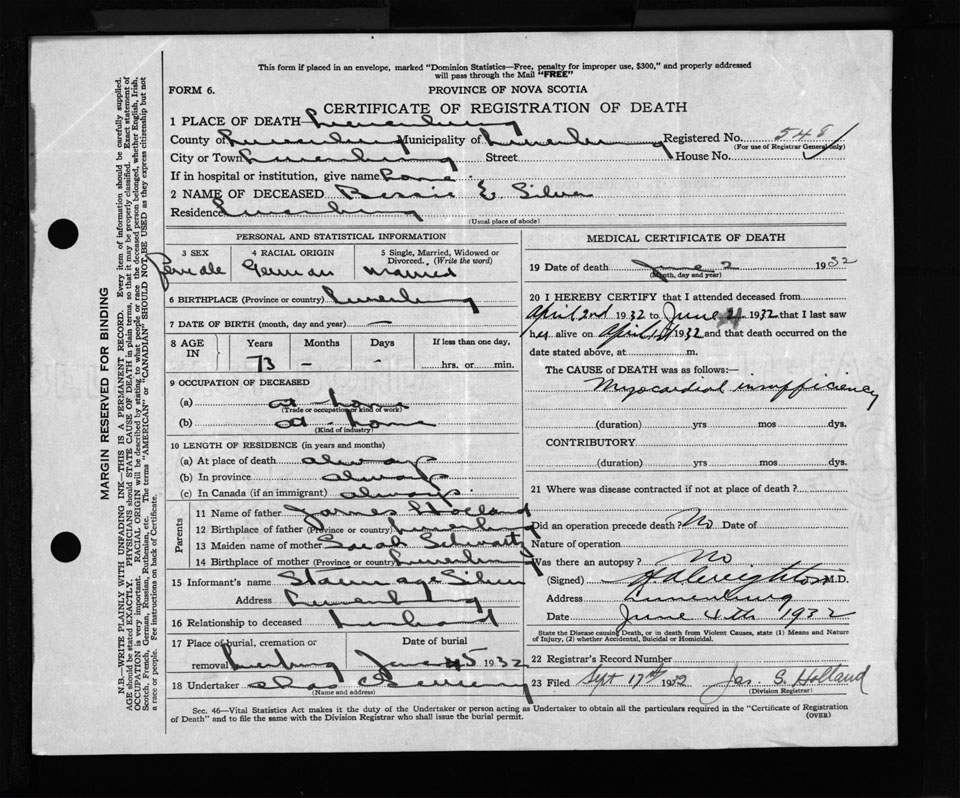 This form if placed in an envelope, marked "Dominion Statistics—Free, penalty for improper use, $300," and properly addressed
will pass through the Mail "FREE"
FORM 6.
PROVINCE OF NOVA SCOTIA
CERTIFICATE OF REGISTRATION OF DEATH
1 PLACE OF DEATH Lunenburg
County of Lunenburg Municipality of Lunenburg Registered No. 548
(For use of Registrar General only)
City or Town Lunenburg Street House No.
If in hospital or institution, give name home
2 NAME OF DECEASED Bessie E Silver
Residence Lunenburg
(Usual place of abode)
PERSONAL AND STATISTICAL INFORMATION
3 SEX 4 RACIAL ORIGIN 5 Single, Married, Widowed or Divorced. (Write the word)
Female German Married
6 BIRTHPLACE (Province or country) Lunenburg
7 DATE OF BIRTH (month, day and year) —
8 AGE IN Years Months Days If less than one day,
73 – – hrs. or min.
9 OCCUPATION OF DECEASED
(a) at home
(Trade or occupation or kind of work)
(b) at home
(Kind of industry)
10 LENGTH OF RESIDENCE (in years and months)
(a) At place of death always
(b) In province always
(c) In Canada (if an immigrant) always
Parents
11 Name of father James Holland
12 Birthplace of father (Province or country) Lunenburg
13 Maiden name of mother Sarah Schwartz
14 Birthplace of mother (Province or country) Lunenburg
15 Informant's name Silver
Address Lunenburg
16 Relationship to deceased husband
17 Place of burial, cremation or removal Lunenburg Date of burial June 5 1932
18 Undertaker Chas
(Name and address)
MEDICAL CERTIFICATE OF DEATH
19 Date of death June 2 1932
(Month, day and year)
20 I HEREBY CERTIFY that I attended deceased from
April 2nd 1932 to June 2 1932 that I last saw
her alive on April 1932 and that death occurred on
date stated above, at m.
The CAUSE of DEATH was as follows:—
Myocardial insufficiency
(duration) yrs mos dys.
CONTRIBUTORY
(duration) yrs mos dys.
21 Where was disease contracted if not at place of death?
Did an operation precede death? No Date of
Nature of operation
Was there an autopsy? No
(Signed) M.D.
Address Lunenburg
Date June 4th 1932
State the Disease causing Death, or in death from Violent Causes, state (1) Means and Nature
of Injury, (2) whether Accidental, Suicidal or Homicidal.
22 Registrar's Record Number
23 Filed Sept 17th 1932 Jas. S. Holland
(Division Registrar)
Sec. 46—Vital Statistics Act makes it the duty of the Undertaker or person acting as Undertaker to obtain all the particulars required in the "Certificate of Registration
of Death" and to file the same with the Division Registrar who shall issue the burial permit.
(OVER)
MARGIN RESERVED FOR BINDING
N.B.—WRITE PLAINLY WITH UNFADING INK—THIS IS A PERMANENT RECORD. Every item of information should be carefully supplied.
AGE should be stated EXACTLY. PHYSICIANS should STATE CAUSE OF DEATH in plain terms, so that it may be properly classified. Exact statement of
OCCUPATION is very important. RACIAL ORIGIN will be described by stating to what people or race the deceased person belonged, whether English, Irish,
Scotch, French, German, Russian, Ruthenian, etc. The terms "AMERICAN" or "CANADIAN" SHOULD NOT BE USED as they express citizenship but not
a race or people. See instructions on back of Certificate.